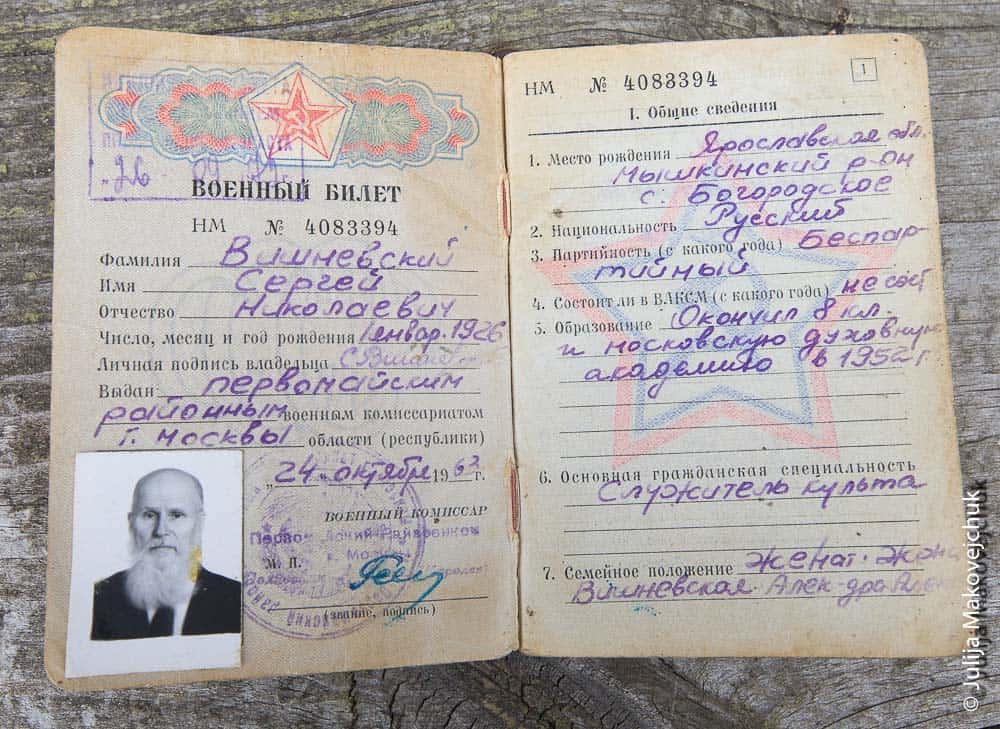 ВОЕННЫЙ БИЛЕТ
НМ № 4083394
Фамилия Вишневский
Имя Сергей
Отчество Николаевич
Число, месяц и год рождения 1 январ. 1926
Личная подпись владельца
Выдан первомайским
районным военным комиссариатом
г. Москвы области (республики)
„24„ октября 1963 г.
ВОЕННЫЙ КОМИССАР
М. П.
(звание, подпись)
НМ № 4083394
1
I. Общие сведения
1. Место рождения Ярославская обл.
Мышкинский р-он
с. Богородское
2. Национальность Русский
3. Партийность (с какого года) Беспар-
тийный
4. Состоит ли в ВЛКСМ (с какого года) не сост
5. Образование Окончил 8 кл.
и московскую духовную
академию в 1952 г.
6. Основная гражданская специальность
Служитель культа
7. Семейное положение женат. жена
Вишневская Алек-дра
© Julija Makovejchuk